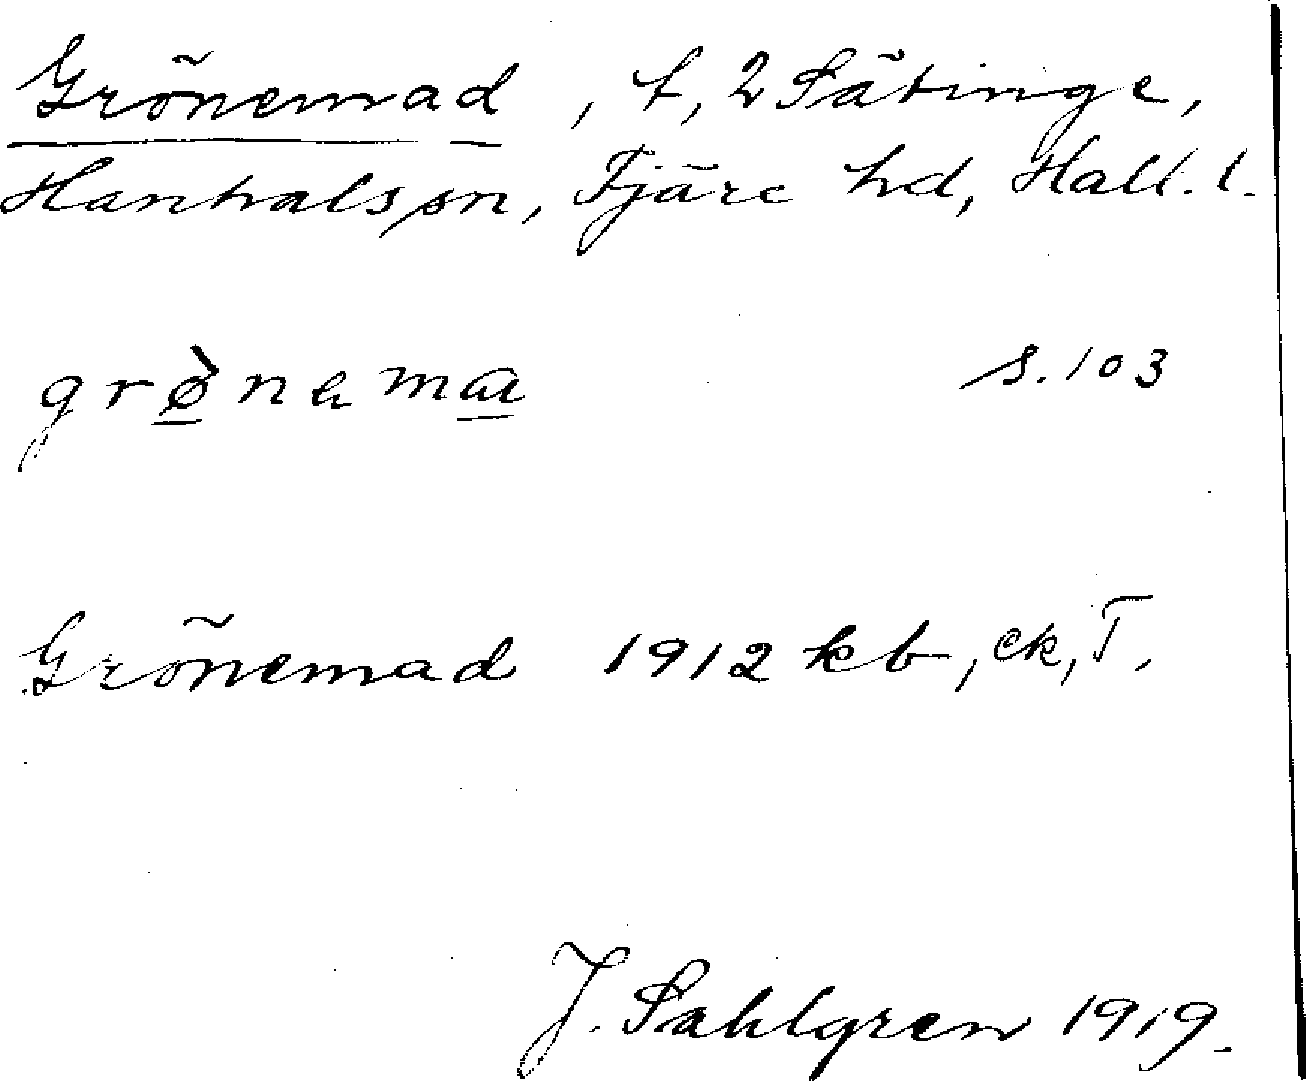 Grönemad, t, 2 Sätinge,
Hanhals sn, Fjäre hd, Hall. l.
grø̀nema s. 103
Grönemad 1912 kb, ek, T.
J. Sahlgren 1919.